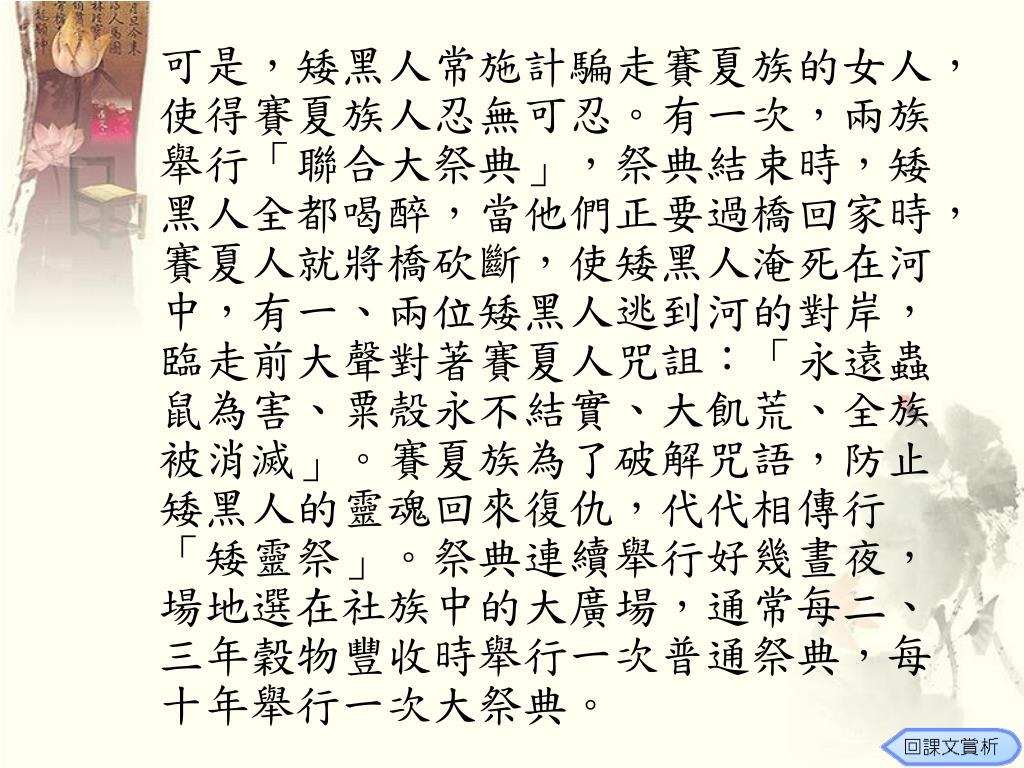 可是，矮黑人常施計騙走賽夏族的女人，
使得賽夏族人忍無可忍。有一次，兩族
舉行「聯合大祭典」，祭典結束時，矮
黑人全都喝醉，當他們正要過橋回家時，
賽夏人就將橋砍斷，使矮黑人淹死在河
中，有一、兩位矮黑人逃到河的對岸，
臨走前大聲對著賽夏人咒詛：「永遠蟲
鼠為害、粟殼永不結實、大飢荒、全族
被消滅」。賽夏族為了破解咒語，防止
矮黑人的靈魂回來復仇，代代相傳行
「矮靈祭」。祭典連續舉行好幾晝夜，
場地選在社族中的大廣場，通常每二、
三年穀物豐收時舉行一次普通祭典，每
十年舉行一次大祭典。
回課文賞析